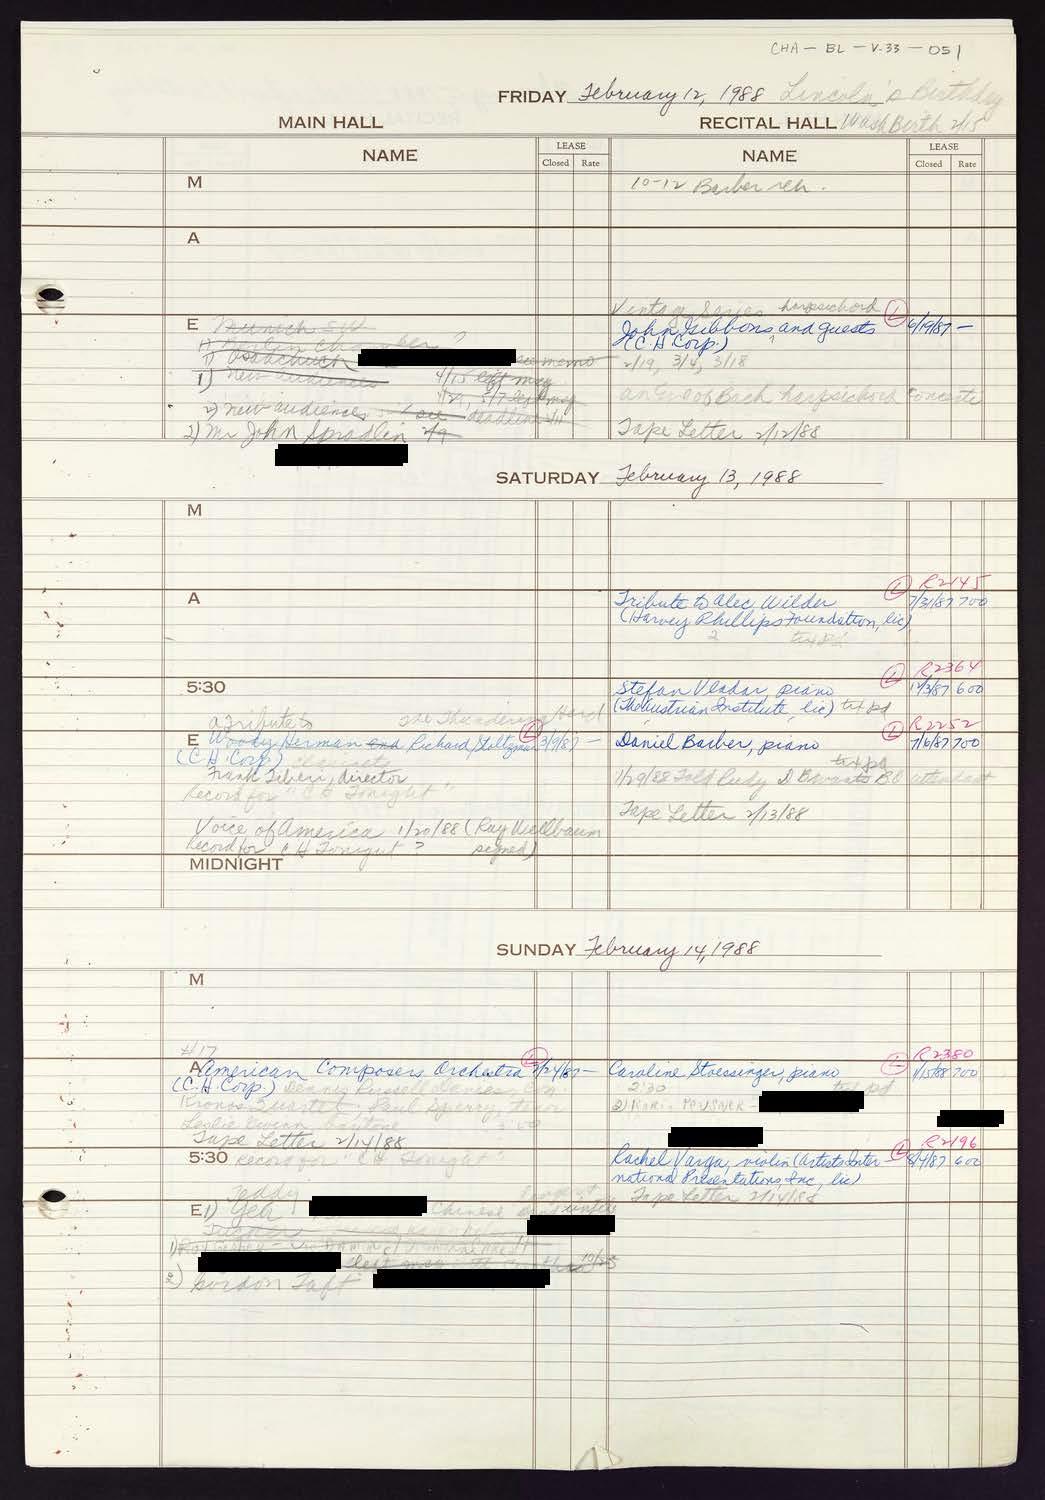 CHA - BL - V.33 - 051
FRIDAY February 12, 1988 Lincoln's Birthday
MAIN HALL
RECITAL HALL Wash Birth 2/15
NAME
LEASE
Closed Rate
NAME
LEASE
Closed Rate
M
10-12 Barber reh.
A
Vintage Series harpsichord
E Munich
John Gibbons and guests L 6/19/87 -
1) Berlin Chamber ?
(C.H. Corp.)
1) see memo
2/19, 3/4, 3/18
1) New audiences 4/15 left msg
4/21, 5/7 left msg
an Eve of Bach harpsichord Concerto
2) New audiences see deadline
2) Mr John Spradlin 2/9
Tape Letter 2/12/88
SATURDAY February 13, 1988
M
L R2145
A
Tribute to Alec Wilder 7/31/87 700
(Harvey Phillips Foundation, lic)
2 txt pd
L R2364
5:30
Stefan Vladar, piano 12/3/87 600
(The Austrian Institute, lic) txt pd
a Tribute to The Thundering Herd
L R2252
E Woody Herman and Richard Stoltzman L 3/9/87 -
Daniel Barber, piano 7/6/87 700
(C.H. Corp) clarinets
txt pd
Frank Tiberi, director
1/29/88 Told Rudy D B wants BO attendant
Record for "C H Tonight"
Tape Letter 2/13/88
Voice of America 1/20/88 (Ray Wellbaum
Record for C H Tonight ? signed)
MIDNIGHT
SUNDAY February 14, 1988
M
4/17
L R2380
A American Composers Orchestra L 2/24/87 -
Caroline Stoessinger, piano 1/15/88 700
(C.H. Corp) Dennis Russell Davies, Con
2:30 txt pd
Kronos Quartet, Paul Sperry, tenor
2) Kari
Leslie Guinn, baritone
Tape Letter 2/14/88
L R2196
5:30 Record for "C H Tonight"
Rachel Varga, violin (Artists Inter- 8/4/87 600
national Presentations, Inc, lic)
Tape Letter 2/14/88
Teddy
E 1) Yeh Chinese
1)
left msg 10/25
2) Gordon Taft